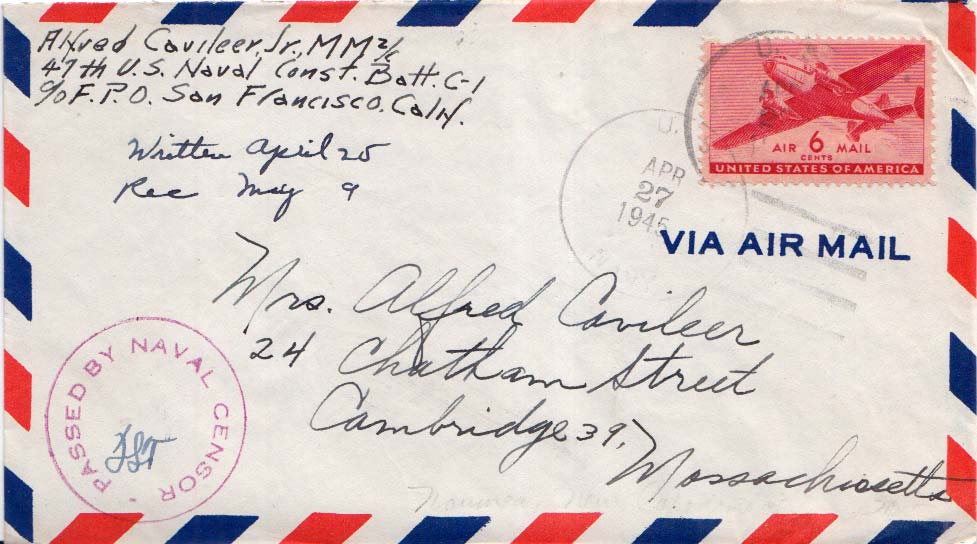 Alfred Cavileer, Jr., MM 2/c
47th U.S. Naval Const. Batt. C-1
c/o F.P.O. San Francisco, Calif.
Written April 25
Rec May 9
U.
APR
27
1945
AIR 6 MAIL
CENTS
UNITED STATES OF AMERICA
VIA AIR MAIL
Mrs. Alfred Cavileer
24 Chatham Street
Cambridge 39,
Massachusetts
PASSED BY NAVAL CENSOR